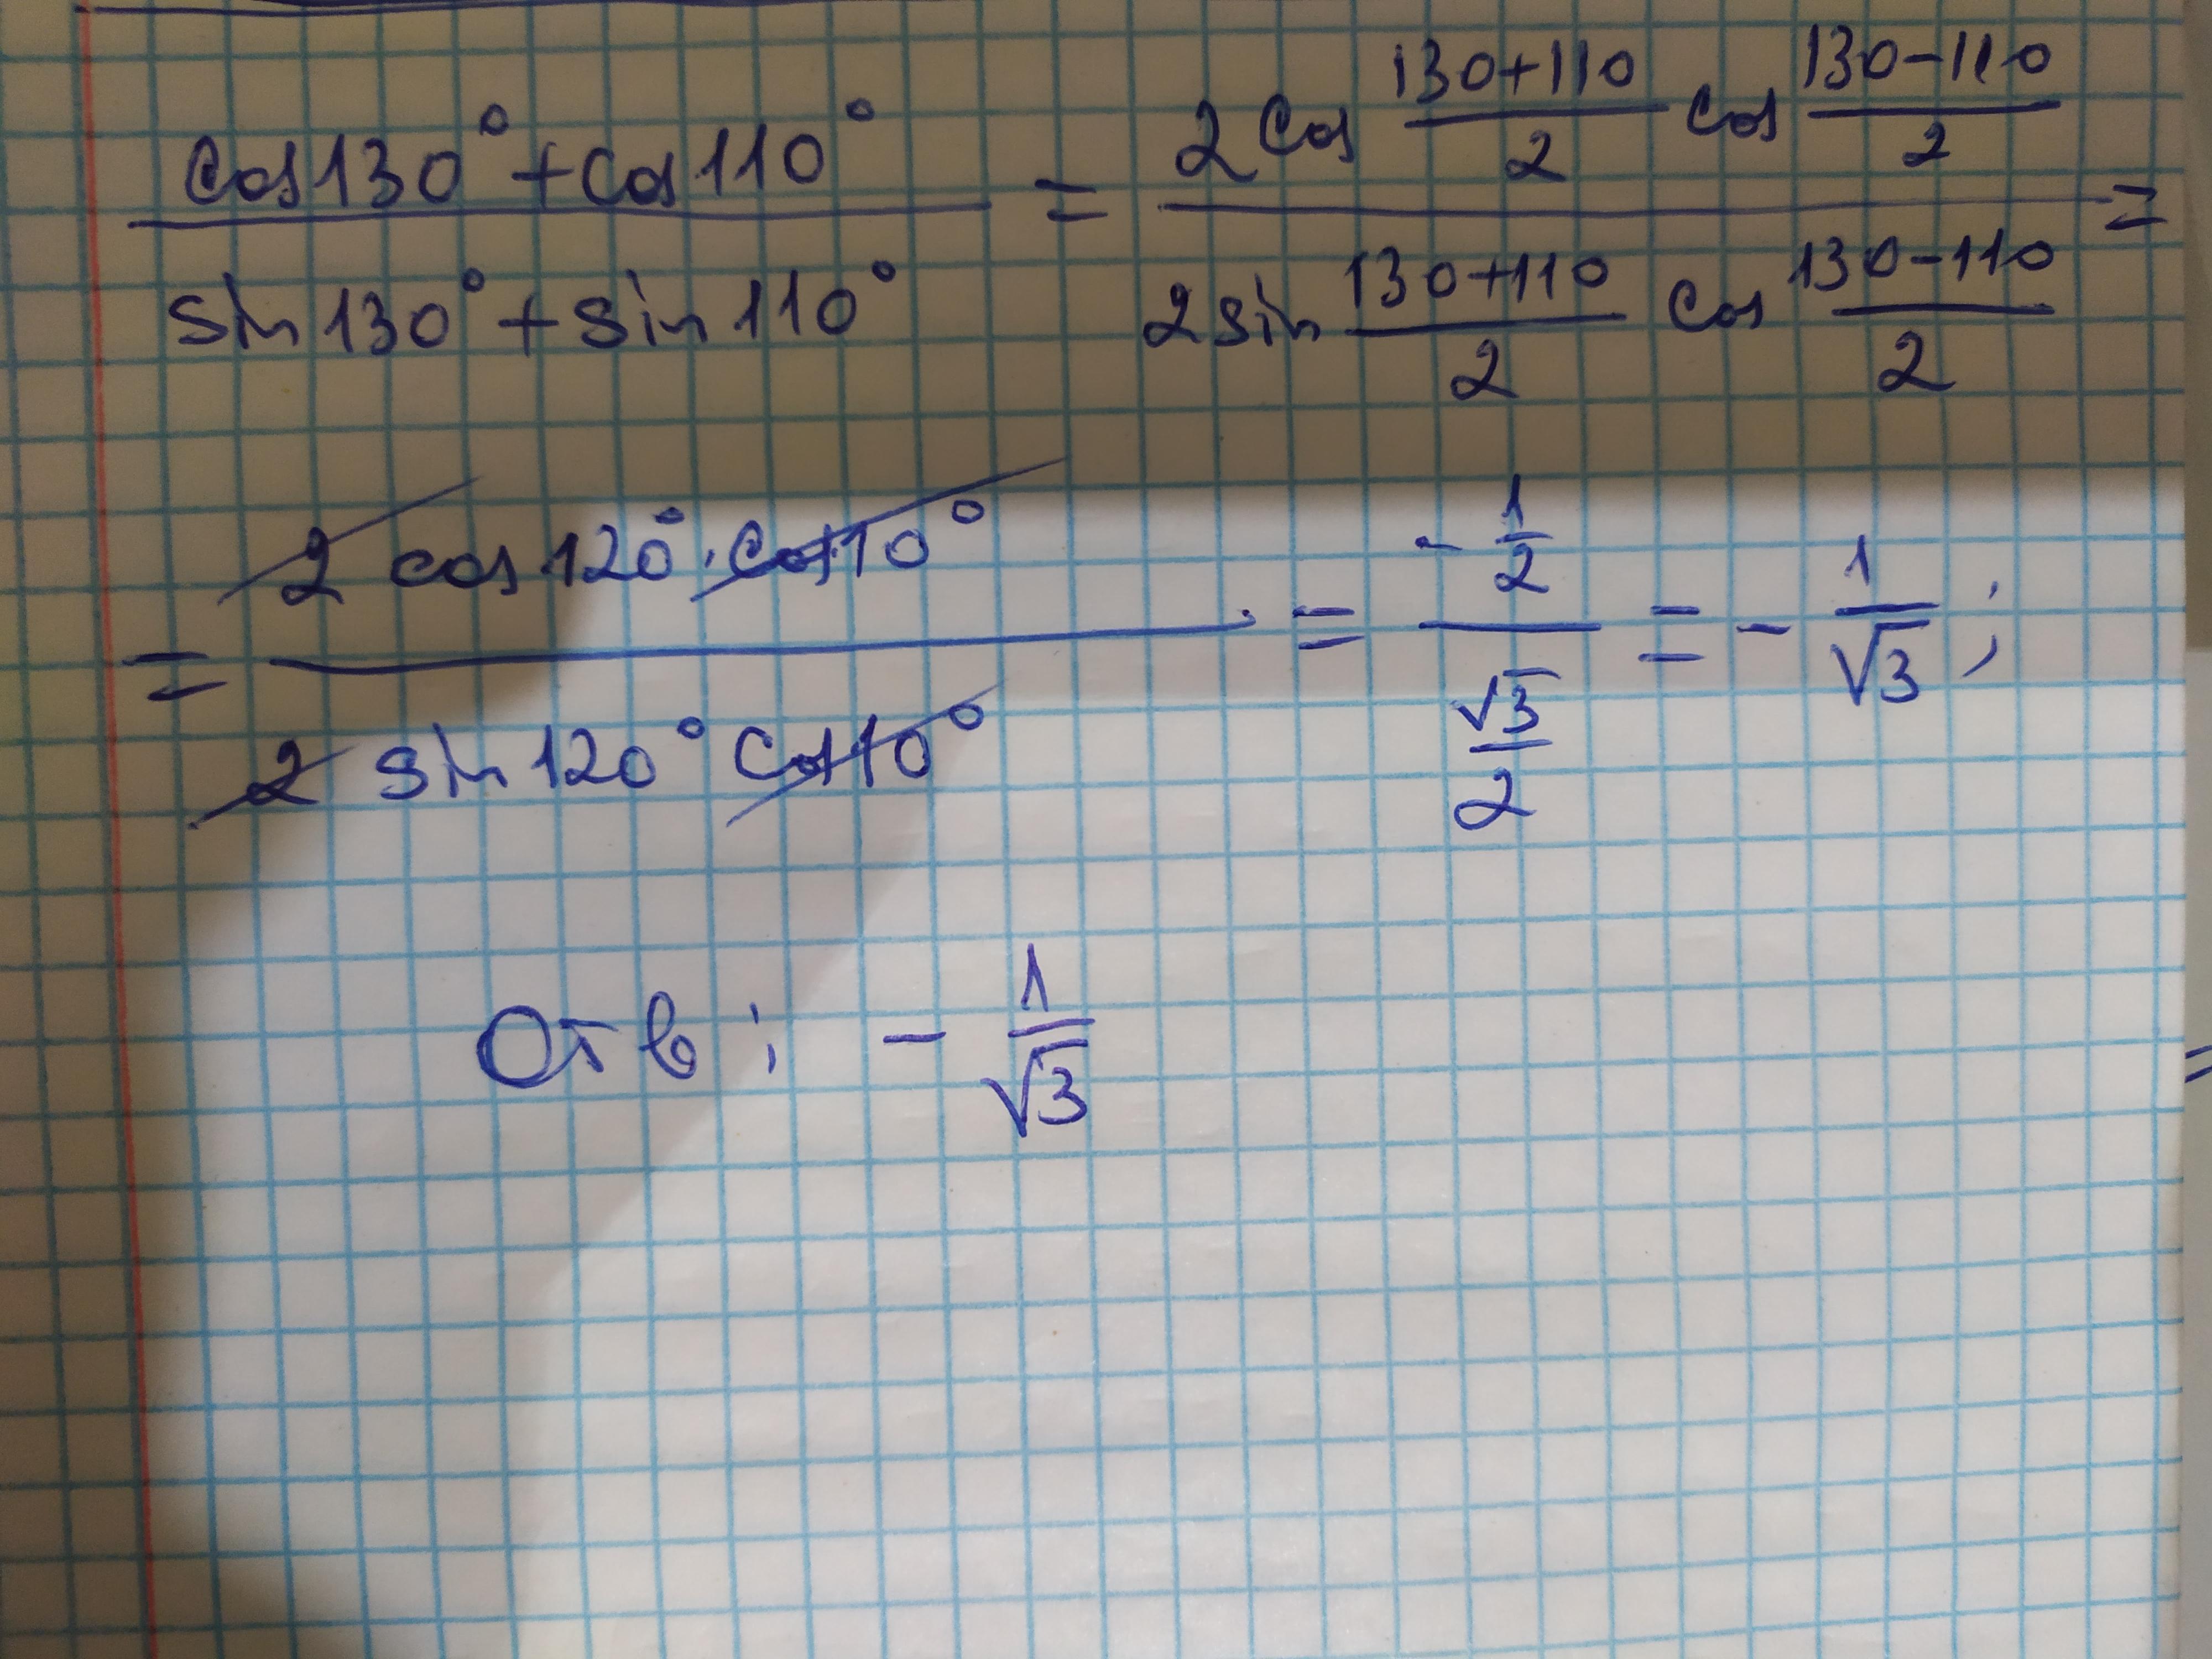 (cos130° + cos110°)/(sin130° + sin110°) = (2 cos (130+110)/2 cos (130-110)/2)/(2 sin (130+110)/2 cos (130-110)/2) =
= (2 cos120° · cos10°)/(2 sin120° cos10°) = (-1/2)/(√3/2) = - 1/√3 ;
Отв: - 1/√3
=